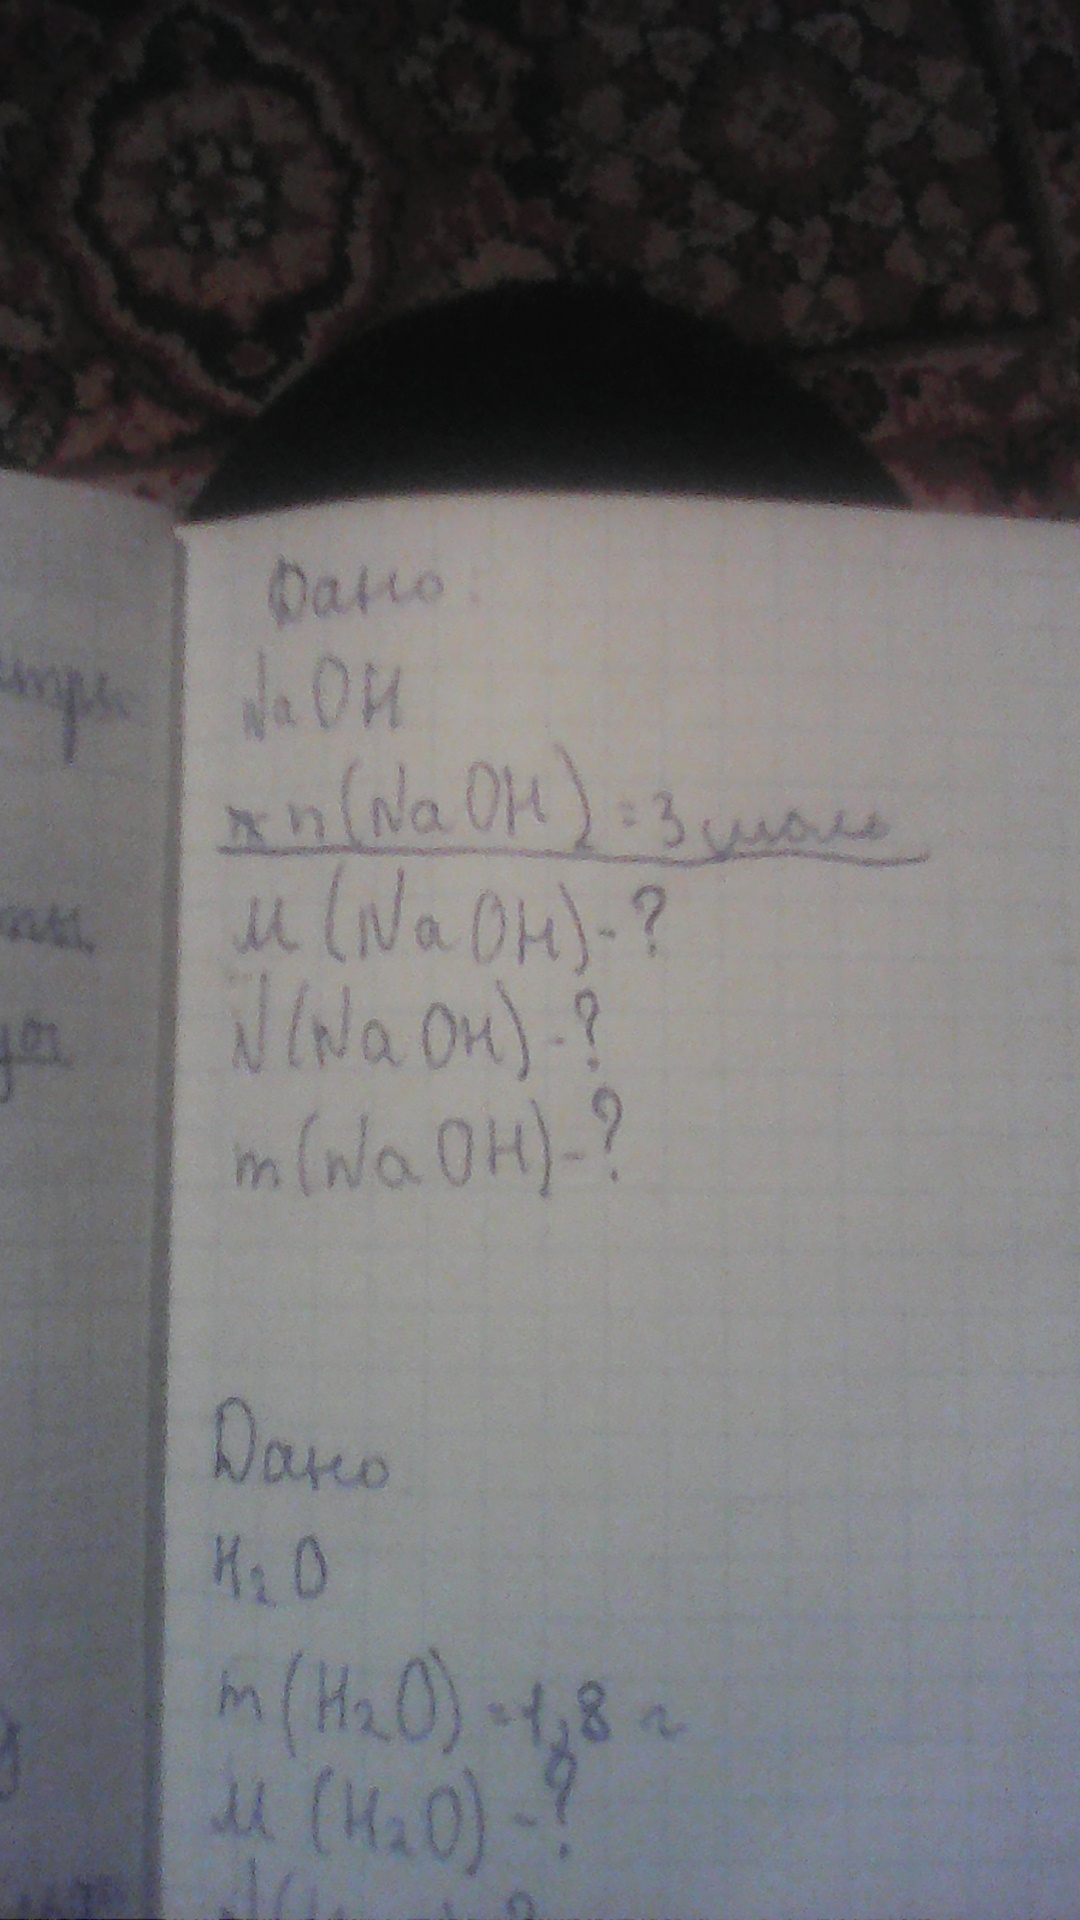 Дано:
NaOH
n(NaOH) = 3 моль
M(NaOH) - ?
N(NaOH) - ?
m(NaOH) - ?
Дано
H₂O
m(H₂O) = 1,8 г
M(H₂O) - ?